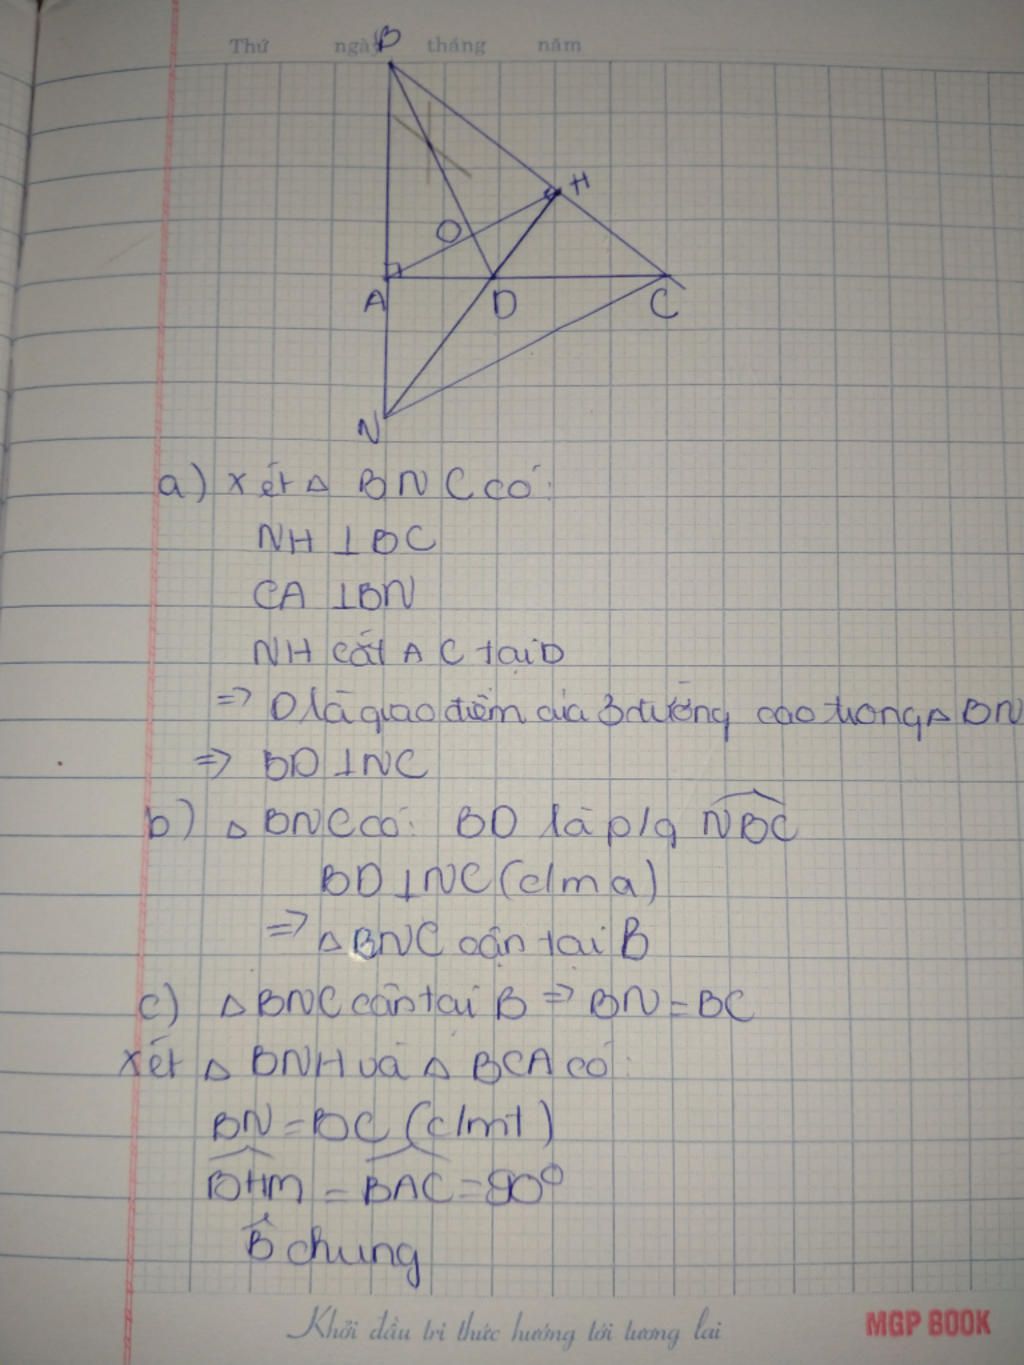 Thứ ngày tháng năm
B
H
O
A D C
N
a) xét △ BNC có:
NH ⊥ BC
CA ⊥ BN
NH cắt AC tại D
=> D là giao điểm của 3 đường cao trong △ BN
=> BD ⊥ NC
b) △ BNC có: BD là p/g \widehat{NBC}
BD ⊥ NC (c/m a)
=> △ BNC cân tại B
c) △ BNC cân tại B => BN = BC
xét △ BNH và △ BCA có:
BN = BC (c/mt)
\widehat{BHM} = \widehat{BAC} = 90°
\hat{B} chung
Khởi đầu tri thức hướng tới tương lai
MGP BOOK